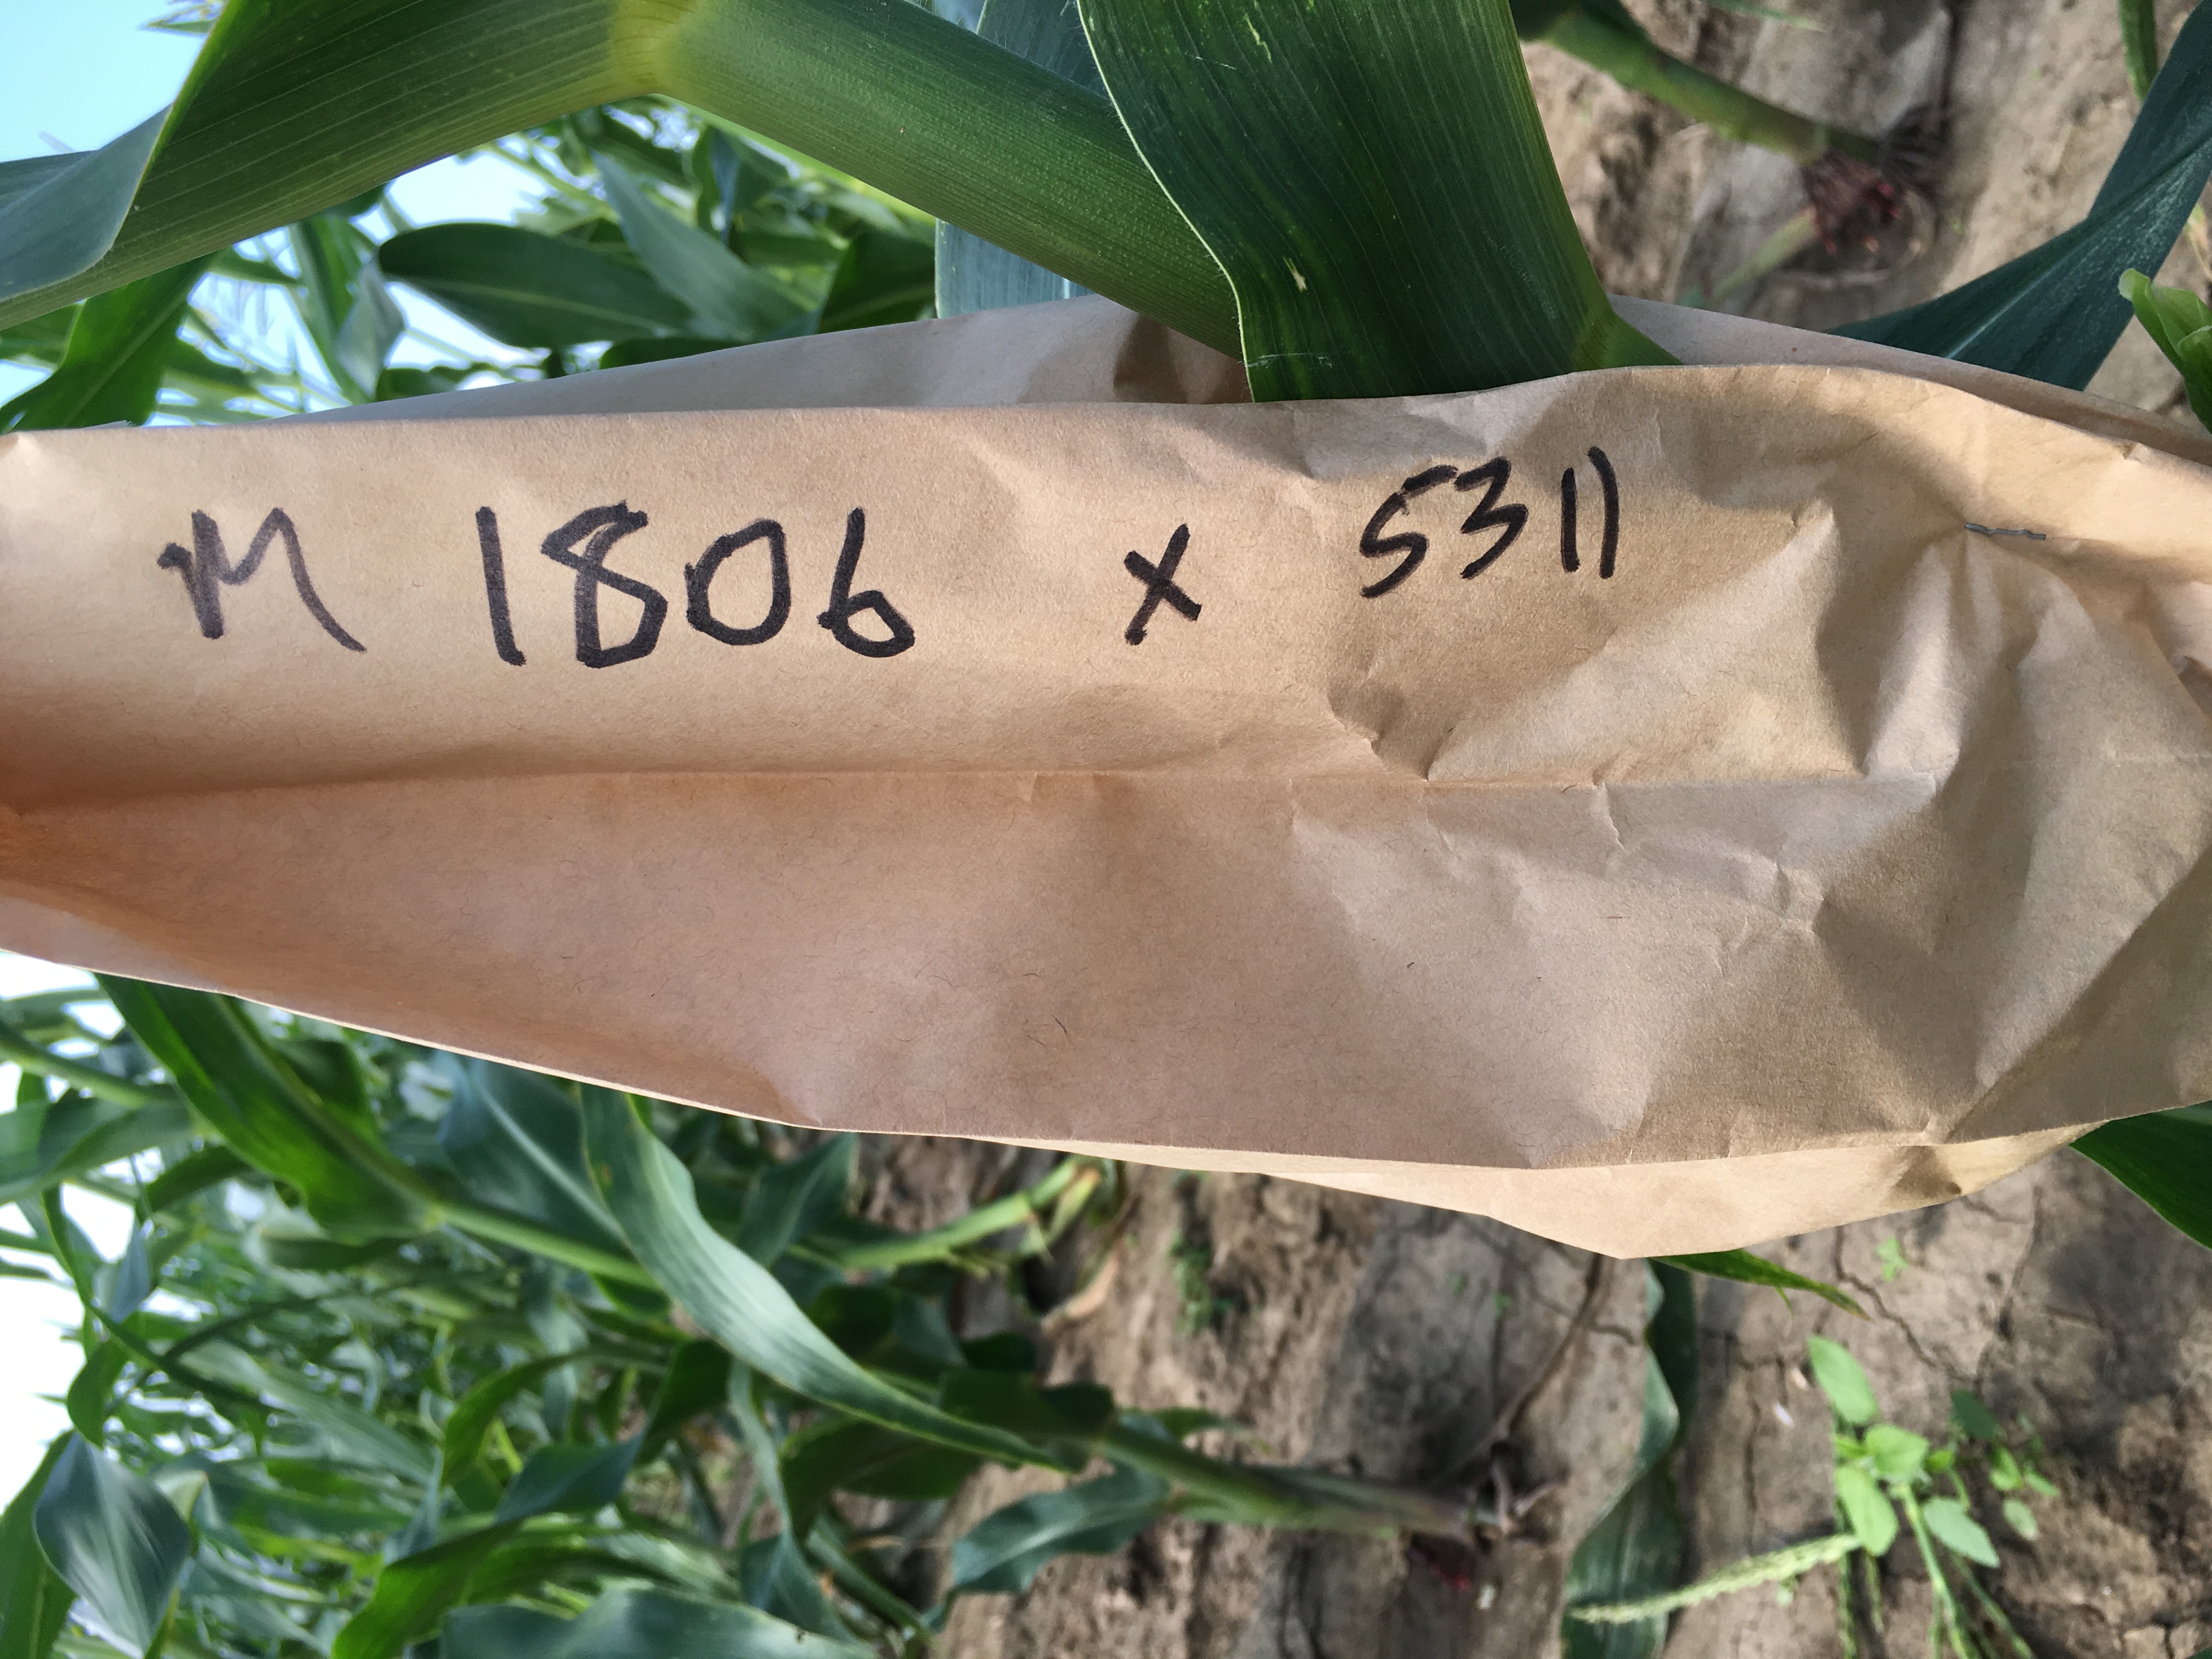 M 1806 x 5311